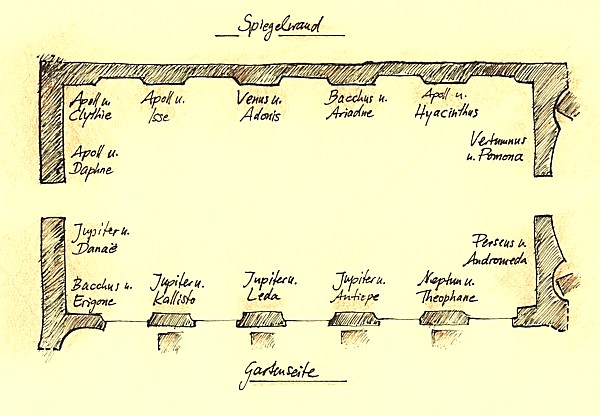 Spiegelwand
Apoll u.
Clythie
Apoll u.
Isse
Venus u.
Adonis
Bacchus u.
Ariadne
Apoll u.
Hyacinthus
Apoll u.
Daphne
Vertumnus
u. Pomona
Jupiter u.
Danaë
Perseus u.
Andromeda
Bacchus u.
Erigone
Jupiter u.
Kallisto
Jupiter u.
Leda
Jupiter u.
Antiope
Neptun u.
Theophane
Gartenseite